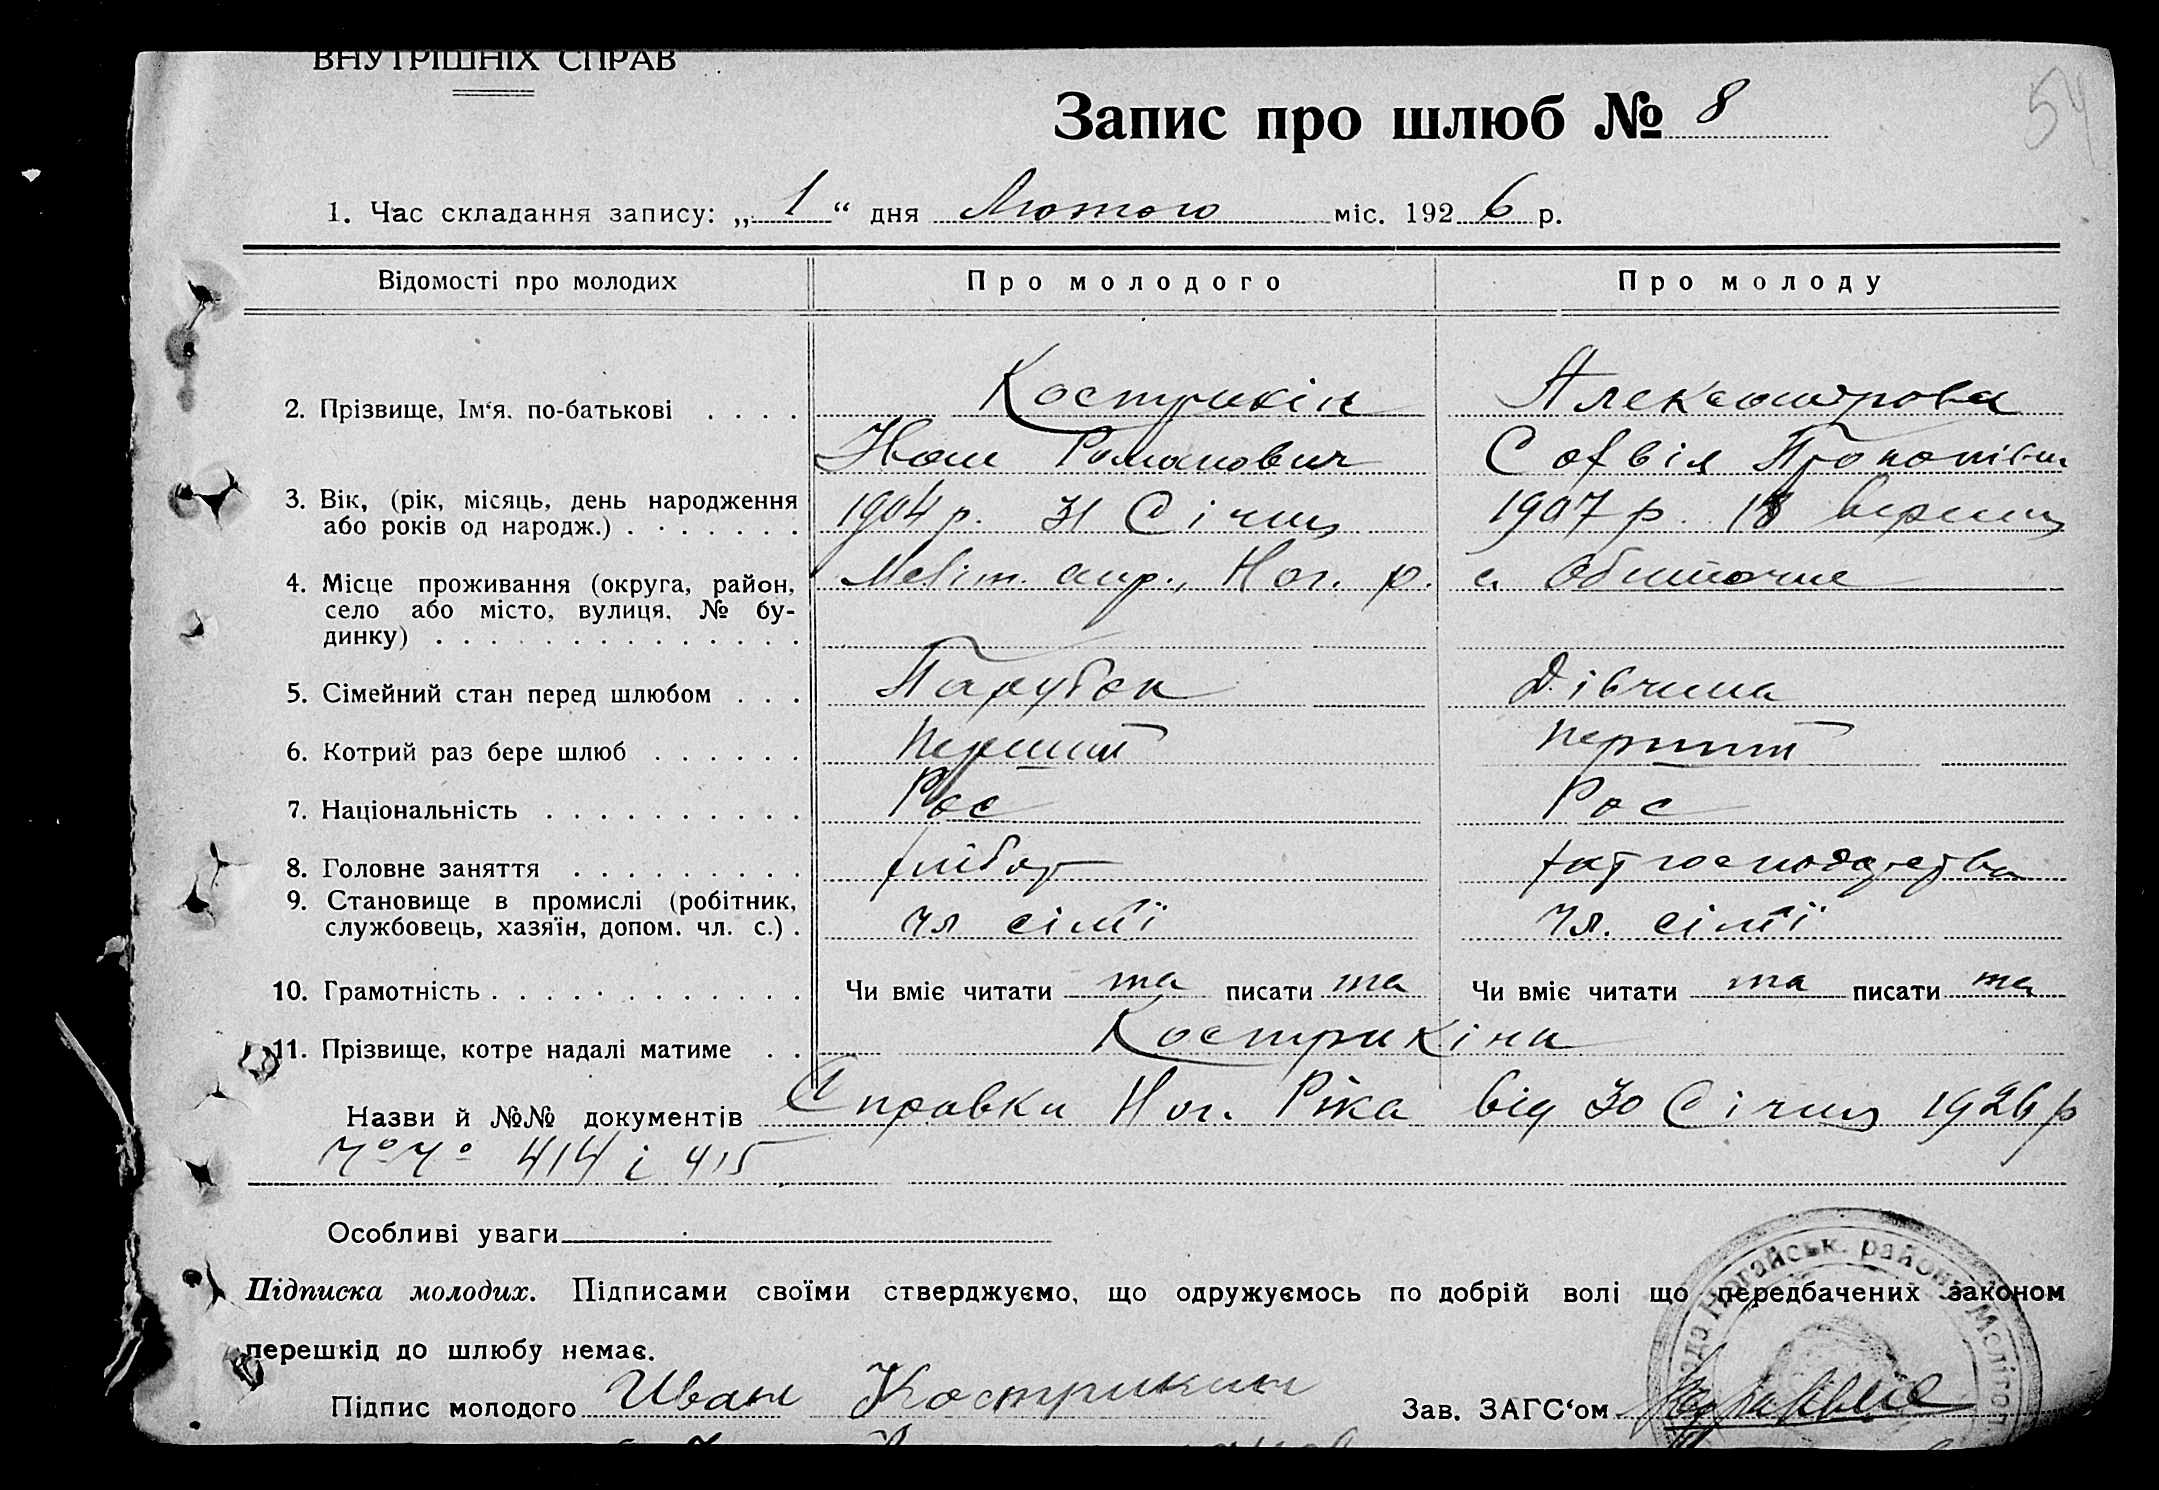 ВНУТРІШНІХ СПРАВ
54
Запис про шлюб № 8
1. Час складання запису: „1“ дня Лютого міс. 1926 р.
Відомості про молодих Про молодого Про молоду
2. Прізвище, Ім‘я. по-батькові Кострикін Александрова
Іван Романович Софвія Прокопівна
3. Вік, (рік, місяць, день народження 1904 р. 31 Січня 1907 р. 18 Вересня
або років од народж.)
4. Місце проживання (округа, район, Меліт. окр., Ног. р. с. Обиточне
село або місто, вулиця, № бу-
динку)
5. Сімейний стан перед шлюбом Парубок Дівчина
6. Котрий раз бере шлюб перший перший
7. Національність Рос Рос
8. Головне заняття хлібор господарства
9. Становище в промислі (робітник, чл сім'ї чл. сім'ї
службовець, хазяїн, допом. чл. с.)
10. Грамотність Чи вміє читати та писати та Чи вміє читати та писати та
11. Прізвище, котре надалі матиме Кострикіни
Назви й №№ документів Справки Ног. Ріка від 30 Січня 1926 р
№№ 414 і 415
Особливі уваги
Підписка молодих. Підписами своїми стверджуємо, що одружуємось по добрій волі що передбачених законом
перешкід до шлюбу немає.
Підпис молодого Иван Кострикин Зав. ЗАГС‘ом
Ногайськ. район Меліто